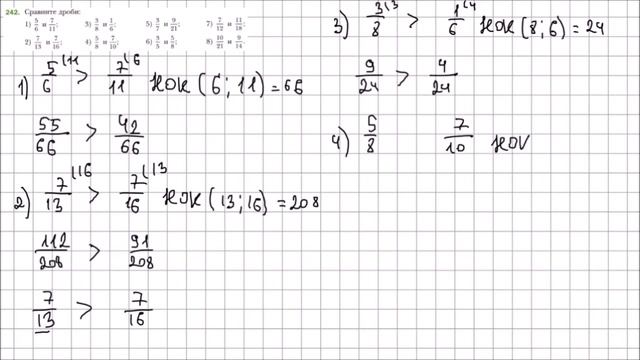 242. Сравните дроби:
1) 5/6 и 7/11; 3) 3/8 и 1/6; 5) 3/7 и 9/21; 7) 7/12 и 11/18;
2) 7/13 и 7/16; 4) 5/8 и 7/10; 6) 3/5 и 5/8; 8) 10/21 и 9/14.
1) 5/6 (11 > 7/11 (6 НОК (6; 11) = 66
55/66 > 42/66
2) 7/13 (16 > 7/16 (13 НОК (13; 16) = 208
112/208 > 91/208
7/13 > 7/16
3) 3/8 (3 > 1/6 (4 НОК (8; 6) = 24
9/24 > 4/24
4) 5/8 7/10 НОК